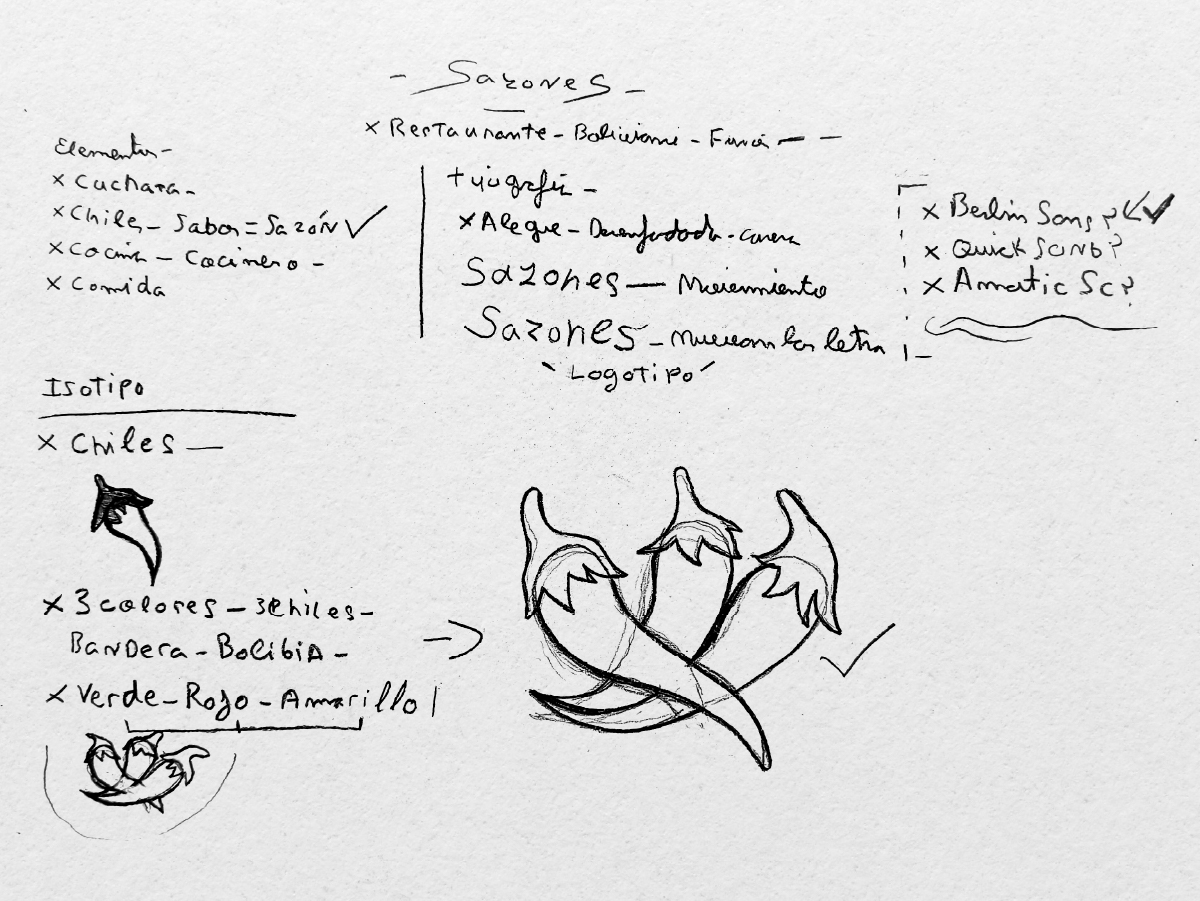 - Sazones -
x Restaurante - Boliviano - Fusión - -
Elementos -
x Cuchara -
x Chile - Sabor = Sazón ✓
x Cocina - Cocinero -
x Comida
Tipografía -
x Alegre - Desenfadada -
Sazones — Movimiento
Sazones - letra
"Logotipo"
x Berlin Sans?
x Quick Sand?
x Amatic Sc?
Isotipo
x Chiles —
x 3 colores - 3 Chiles -
Bandera - Bolibia -
x Verde - Rojo - Amarillo